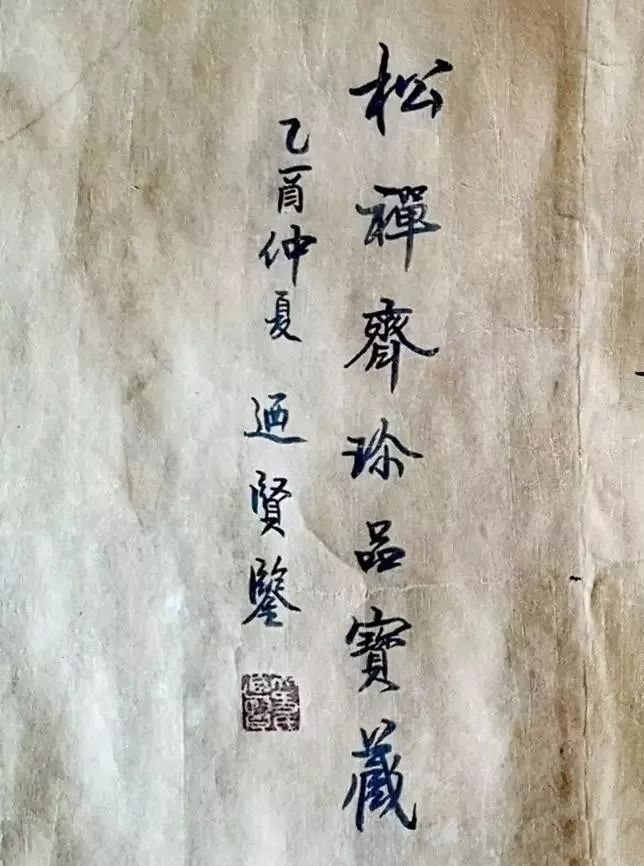 松禪齋珍品寶藏
乙酉仲夏 迺賢鑒